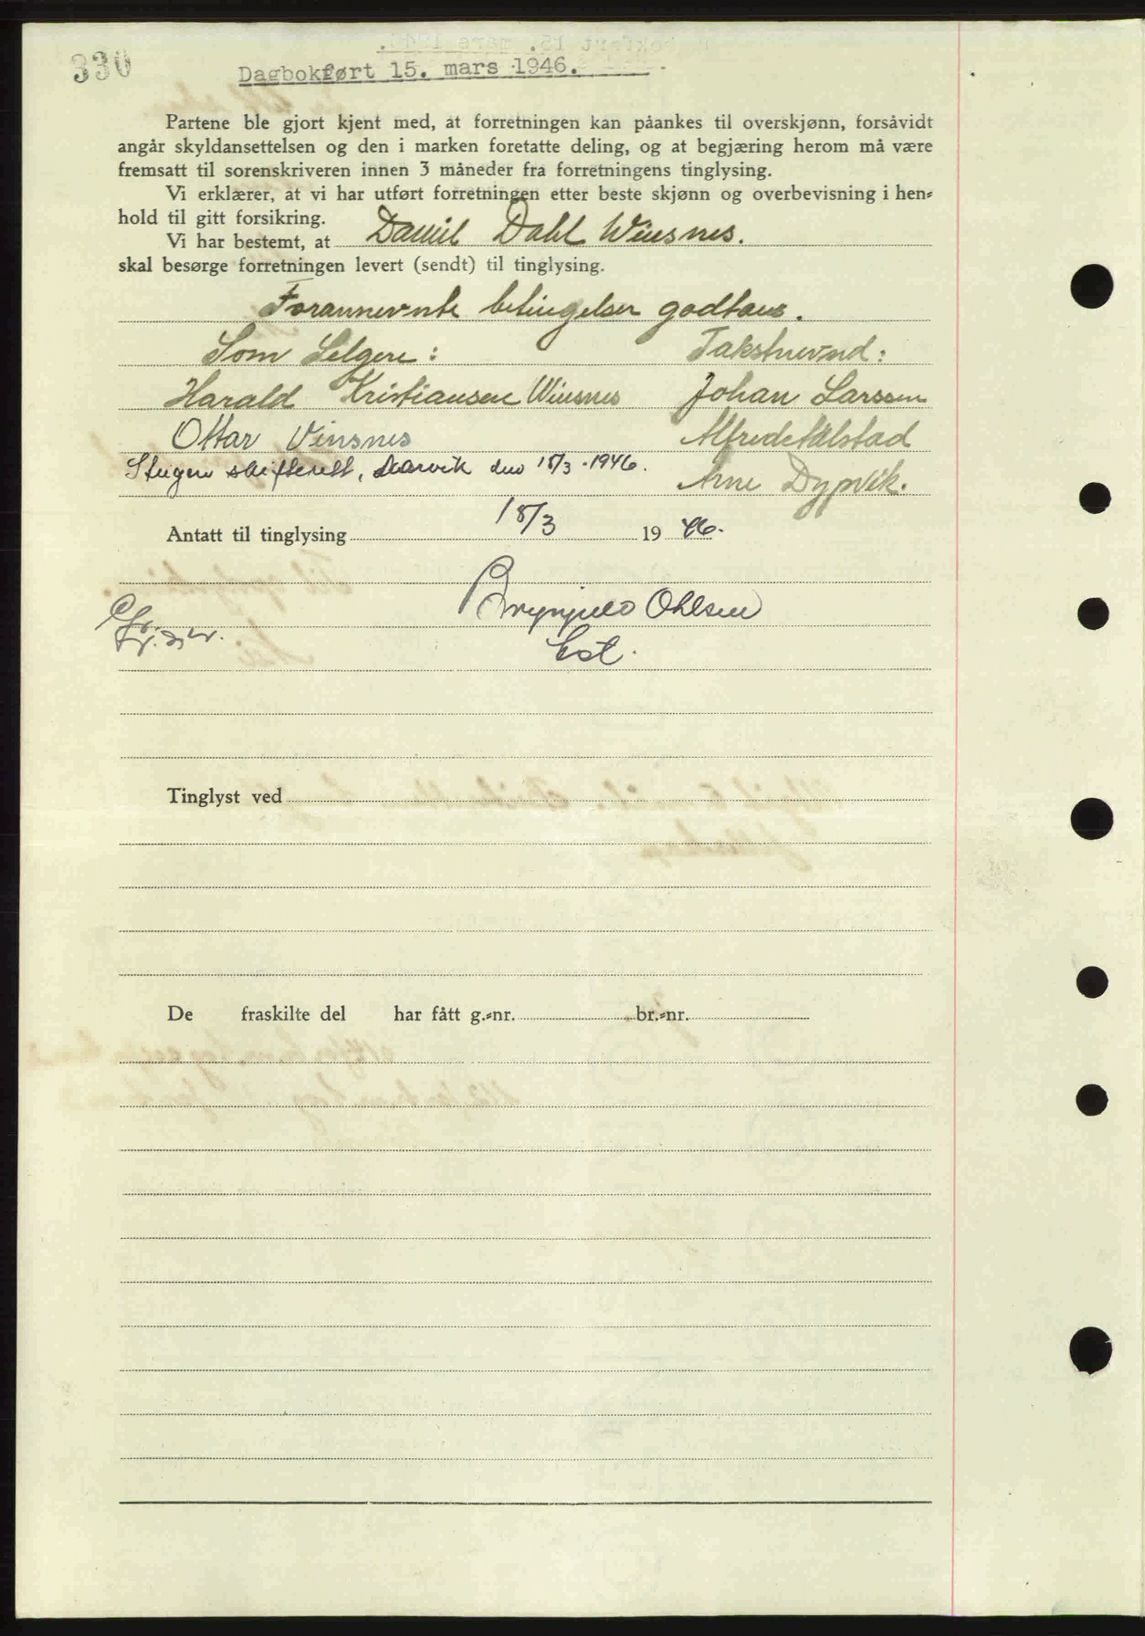 330
Dagbokført 15. mars 1946.
Partene ble gjort kjent med, at forretningen kan påankes til overskjønn, forsåvidt
angår skyldansettelsen og den i marken foretatte deling, og at begjæring herom må være
fremsatt til sorenskriveren innen 3 måneder fra forretningens tinglysing.
Vi erklærer, at vi har utført forretningen etter beste skjønn og overbevisning i hen-
hold til gitt forsikring.
Vi har bestemt, at Daniel Dahl Winsnes.
skal besørge forretningen levert (sendt) til tinglysing.
Forannevnte betingelser godtaes.
Som Selgere: Takstnevnd:
Harald Kristiansen Winsnes Johan Larssen
Ottar Vinsnes Alfred Ålstad
skifterett, den 15/3 - 1946.
Arne Dypvik.
Antatt til tinglysing 15/3 19 46.
Brynjulv Ohlsen
Tinglyst ved
De fraskilte del har fått g.-nr. br.-nr.